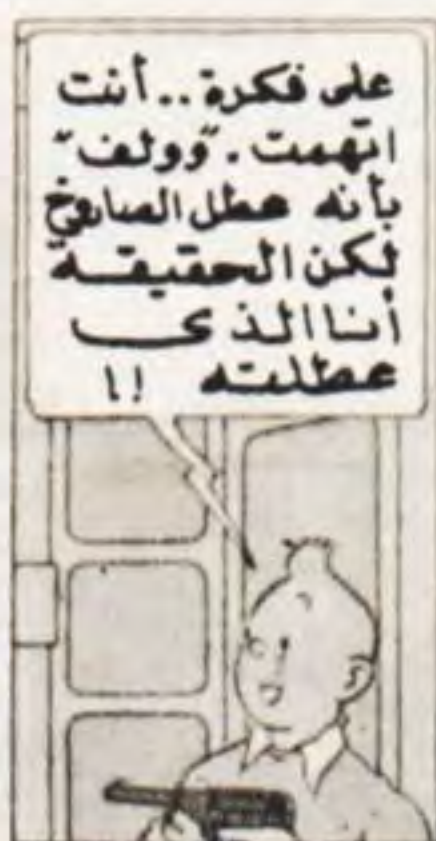 على فكرة .. أنت
اتهمت . "وولف"
بأنه عطل الصاروخ
لكن الحقيقة
أنا الذى
عطلته !!